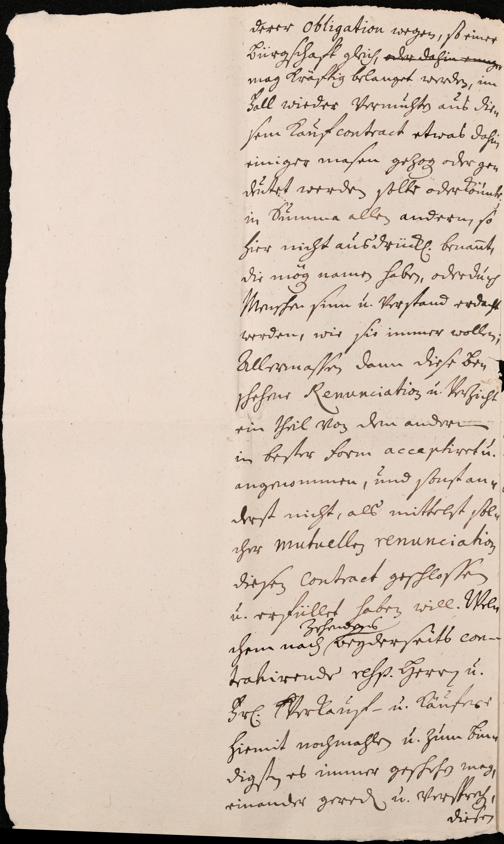 derer obligation wegen, so einer
Bürgschafft gleich, oder dahin
mag kräfftig belanget werden, im
Fall wieder Vermuthen aus die-
sem Kauf contract etwas dahin
einiger masen gezog oder ge-
deutet werden solte oder könnte,
in Summa allen andern, so
hier nicht ausdrückl. benannt,
die mög namen haben, oder durch
Menschen sinn u. Verstand erdacht
werden, wie sie immer wollen,
Allermassen dann diese be-
schehene Renunciation u. Verzicht
ein theil von dem andern
in bester Form acceptiret u.
angenommen, und sonst an-
derst nicht, als mittelst sol-
cher mutuellen renunciation
diesen contract geschlossen
u. erfüllet haben will. Wel-
chem nach beyderseits con-
trahirende resp. Herrn u.
Fr. Verkäuf- u. Käufere
hiemit nochmahlen u. zum bün-
digsten es immer geschehen mag,
einander gered u. versprech,
diesen